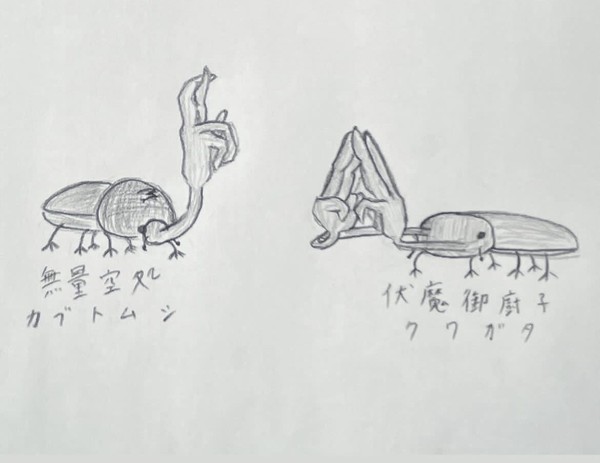 無量空処
カブトムシ
伏魔御廚子
クワガタ